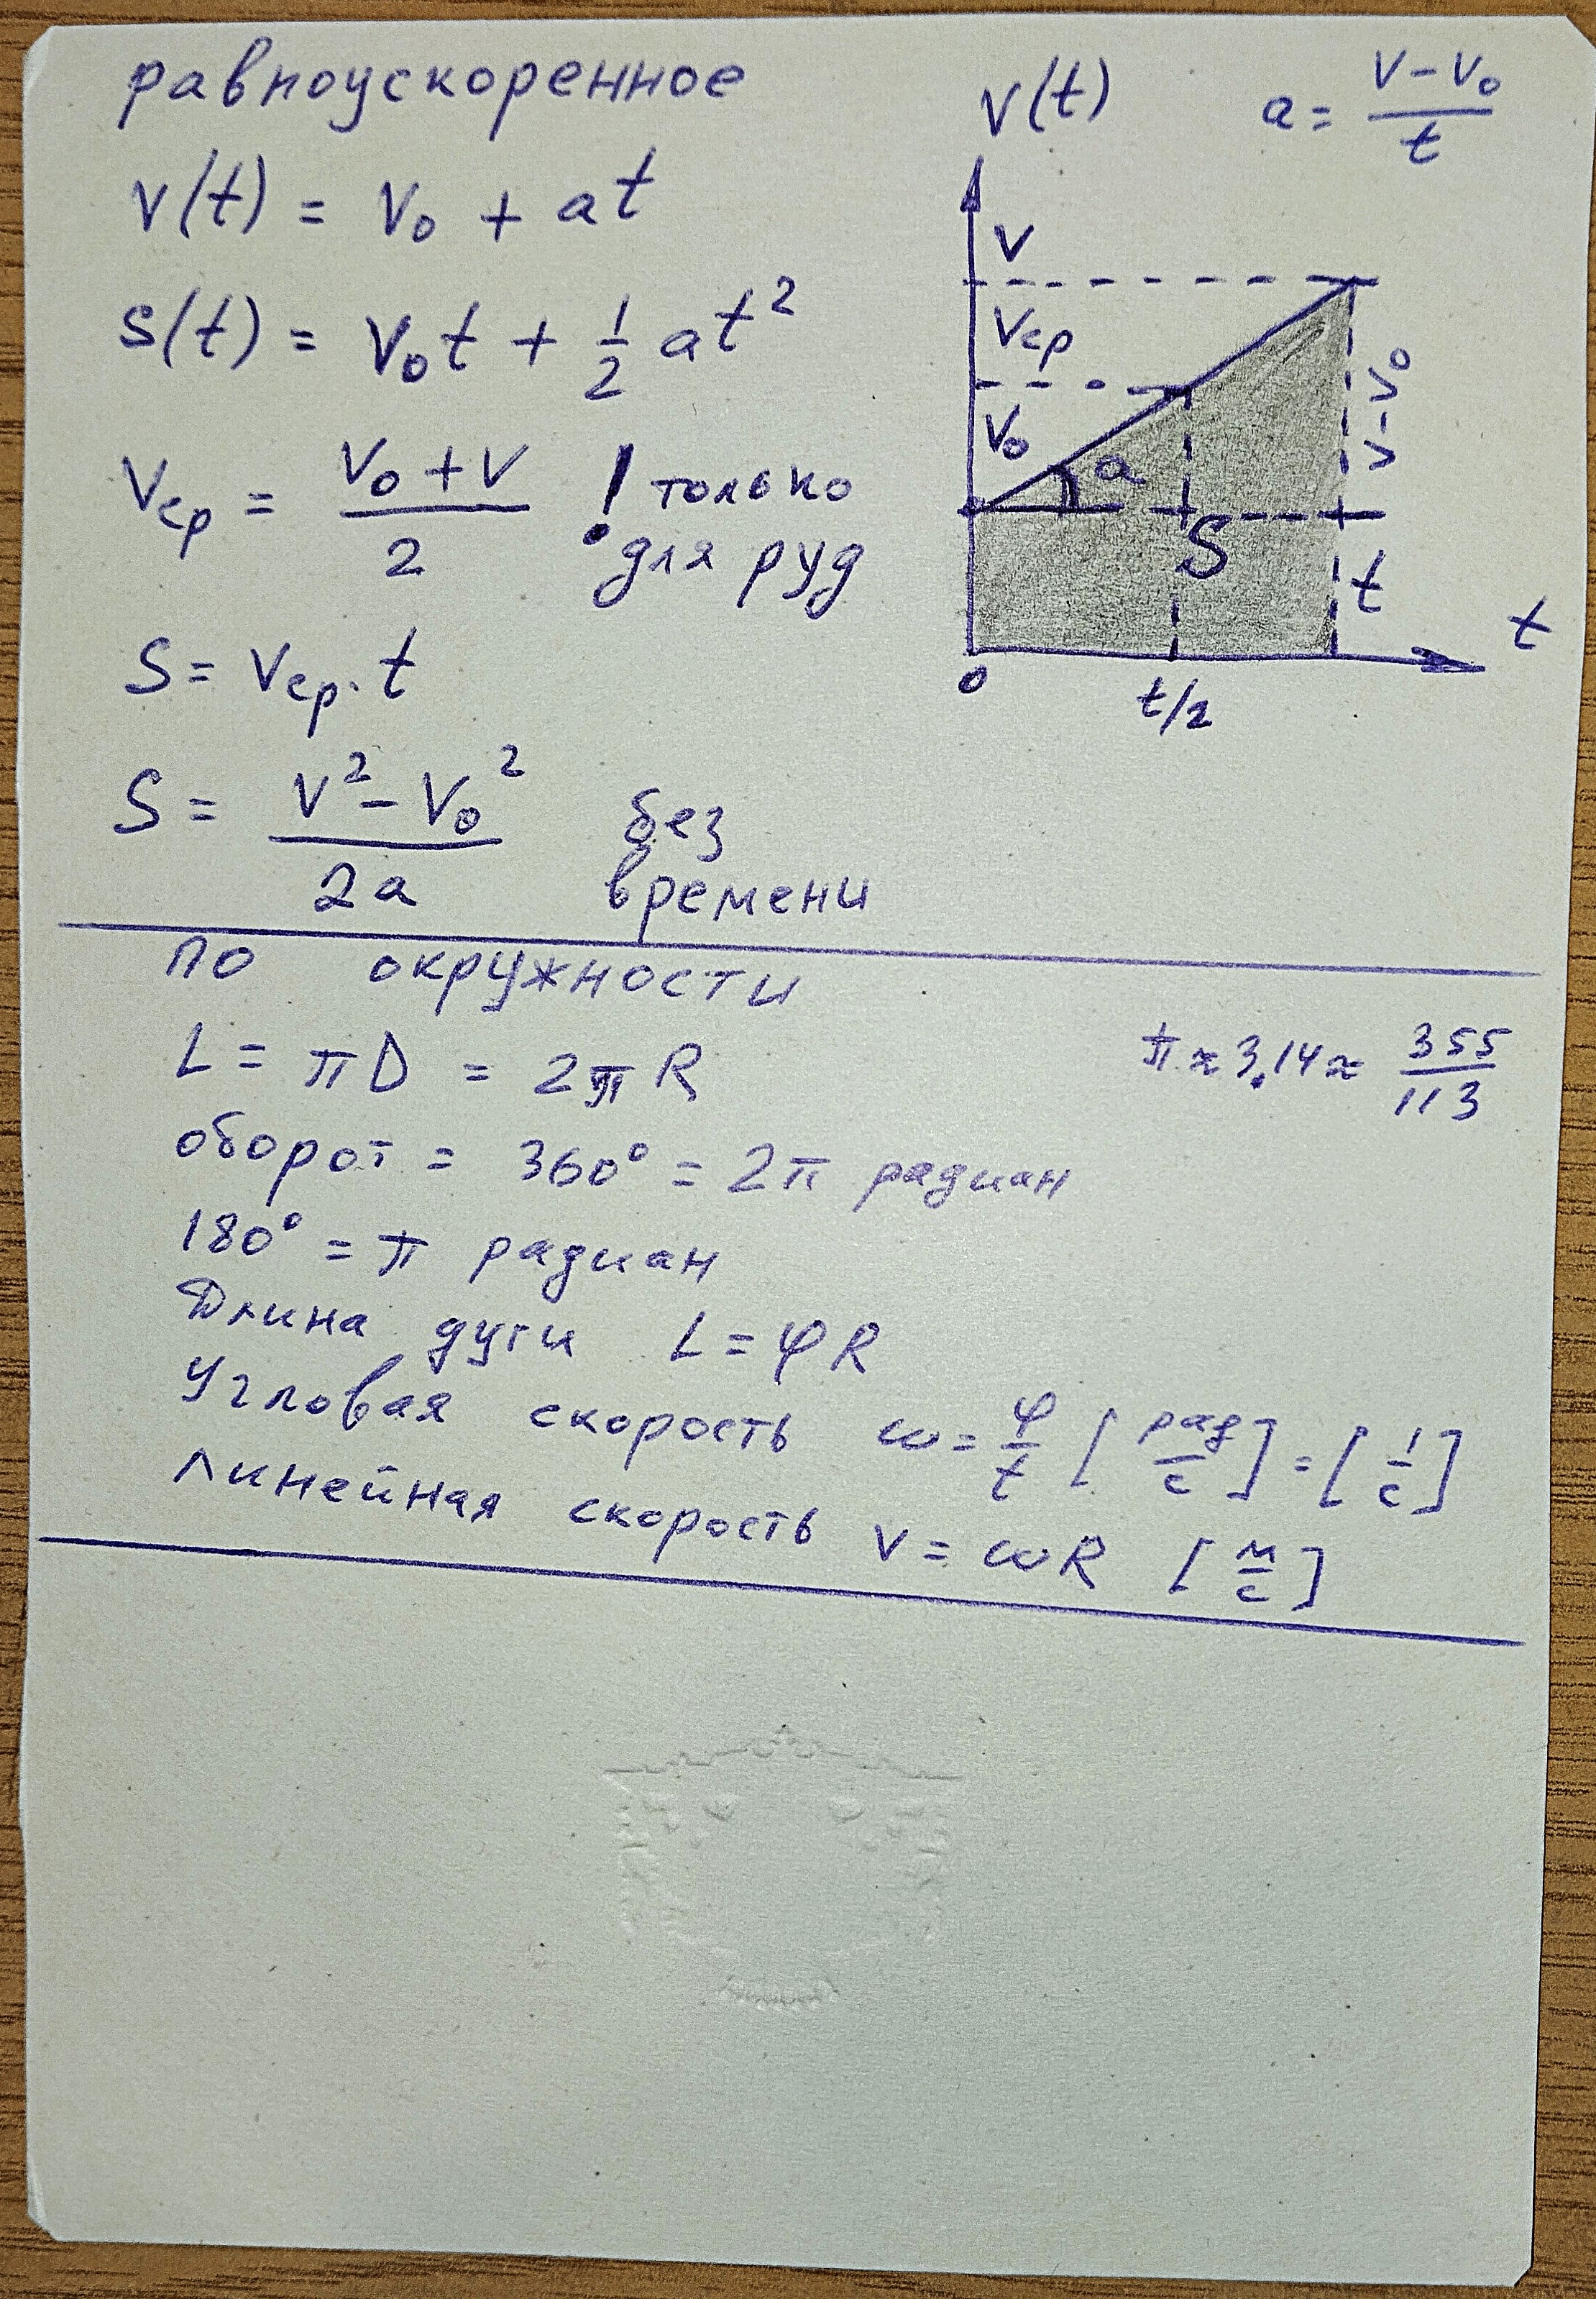 равноускоренное
v(t) = v₀ + at
s(t) = v₀t + 1/2 at²
vср = (v₀ + v)/2 ! только
для руд
S = vср · t
S = (v² - v₀²)/2a без
времени
v(t) a = (v - v₀)/t
v
vср
v₀
a
v - v₀
S
t
t
0
t/2
по окружности
L = πD = 2πR π ≈ 3,14 ≈ 355/113
оборот = 360° = 2π радиан
180° = π радиан
Длина дуги L = φR
Угловая скорость ω = φ/t [рад/с] = [1/с]
Линейная скорость v = ωR [м/с]